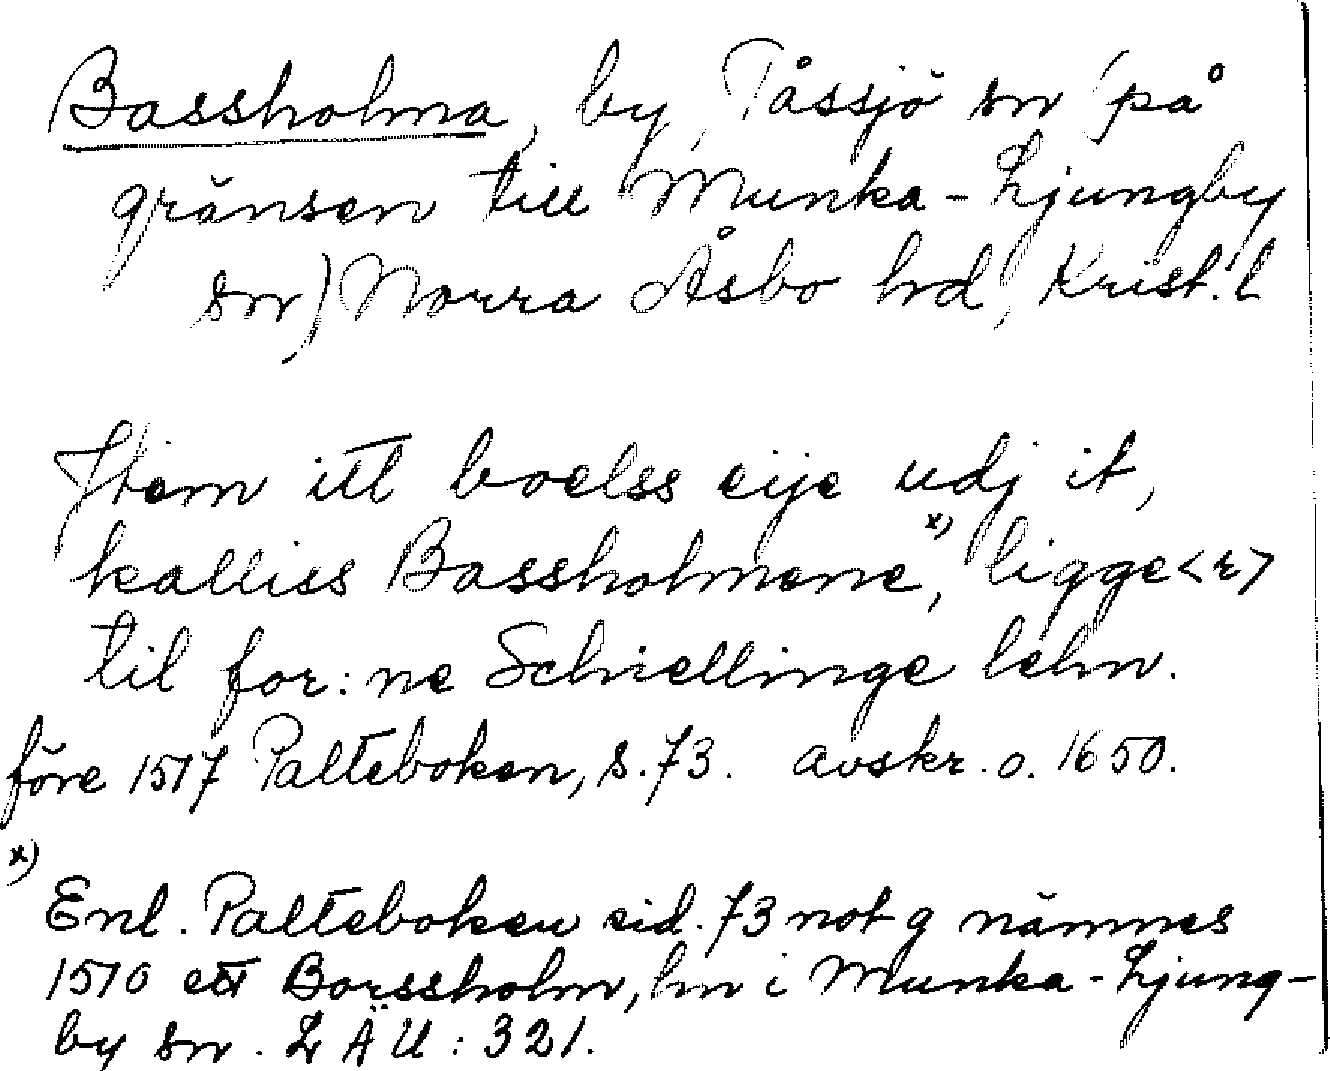 Bassholma, by, Tåssjö sn (på
gränsen till Munka-Ljungby
sn) Norra Åsbo hd, Krist. l
Jtem itt boelss eije udj it,
kalliss Bassholmene,ˣ⁾ ligge<r>
til for:ne Schiellinge lehn.
före 1517 Palteboken, s. 73. avskr. o. 1650.
x)
Enl. Palteboken sid. 73 not g nämnes
1510 ett Borssholm, hn i Munka-Ljung-
by sn. LÄU: 321.